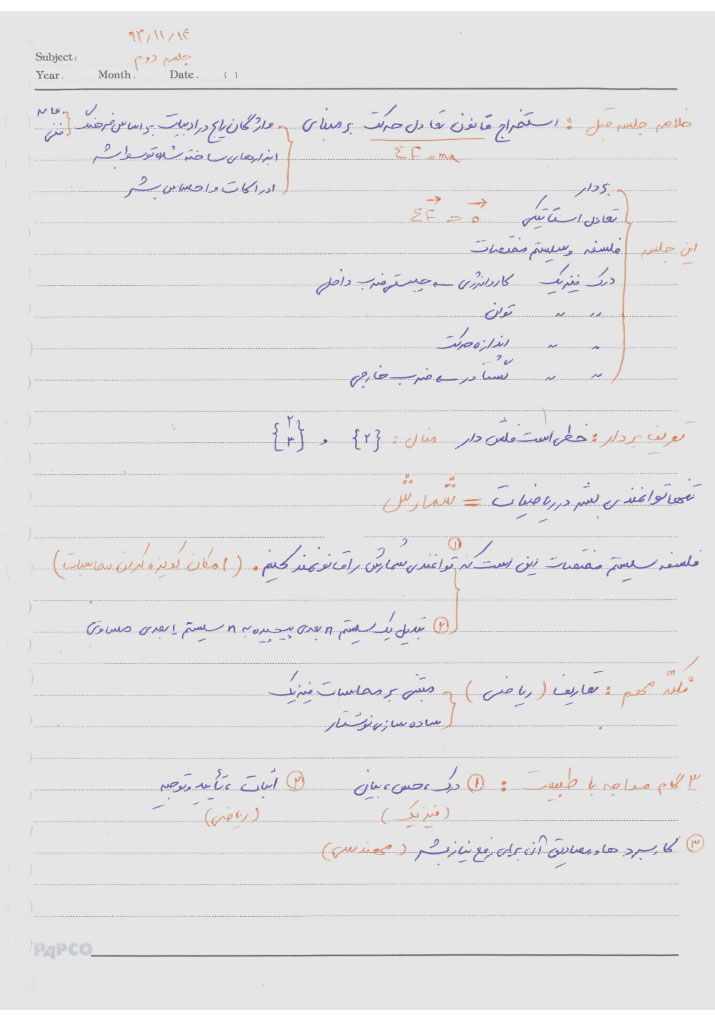 ۹۳/۱۱/۱۴
Subject: جلسه دوم
Year. Month. Date. ( )
خلاصه جلسه قبل : استخراج قانون تعادل حرکت بر مبنای { واژگان رایج در ادبیات بر اساس فرهنگ { عامه
فنی
ΣF = ma
ابزارهای ساخته شده توسط بشر
ادراکات و احساس بشر
این جلسه { بردار
تعادل استاتیکی ΣF = 0
فلسفه و سیستم مختصات
درک فیزیک کار و انرژی ← چیستی ضرب داخلی
〃 〃 توان
〃 〃 اندازه حرکت
〃 〃 گشتاور ← ضرب خارجی
تعریف بردار : خطی است فلش دار مثال : {۲} , {۲ ۳}
تنها توانمندی بشر در ریاضیات = شمارش
فلسفه سیستم مختصات این است که ① توانمندی شمارش را قانونمند کنیم. (امکان کدیزه کردن محاسبات)
② تبدیل یک سیستم n بعدی پیچیده به n سیستم ۱ بعدی مساوی
نکته مهم : تعاریف (ریاضی) { مبتنی بر محاسبات فیزیک
ساده سازی نوشتار
۳ گام مواجه با طبیعت : ① درک، حس، بیان ② اثبات، تأیید و توجیه
(فیزیک) (ریاضی)
③ کاربردها و مصادیق آن برای رفع نیاز بشر (مهندسی)
PAPCO